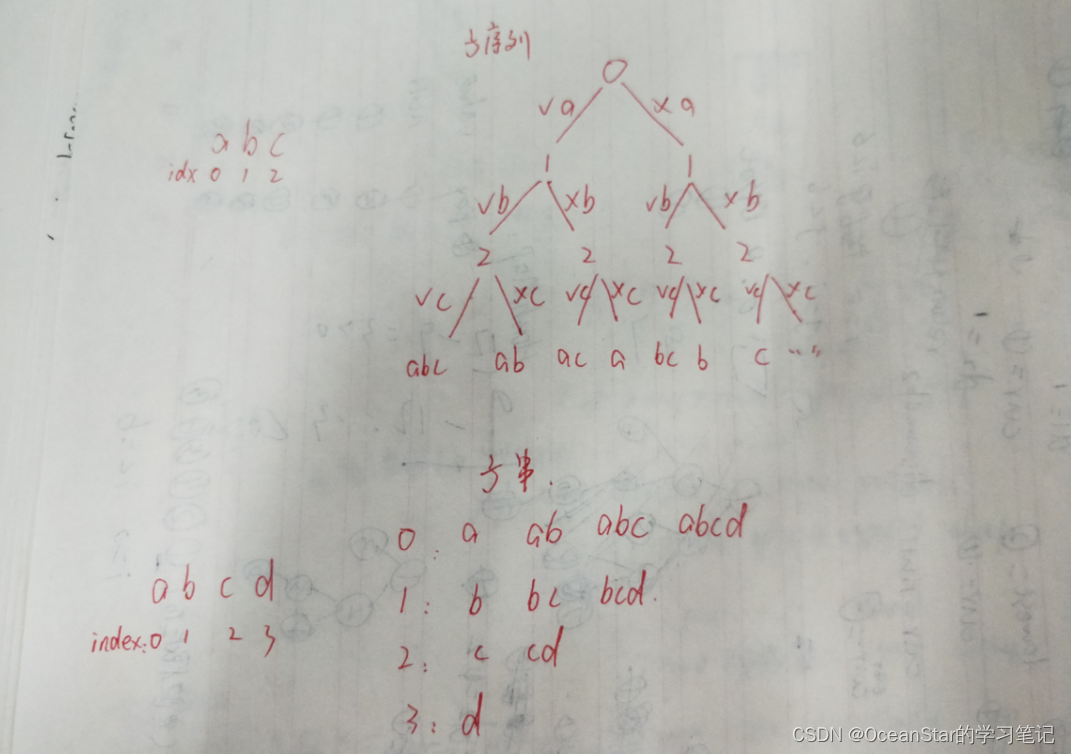 子序列
0
√a ×a
a b c
idx 0 1 2
1 1
√b ×b √b ×b
2 2 2 2
√c ×c √c ×c √c ×c √c ×c
abc ab ac a bc b c “”
子串.
0: a ab abc abcd
a b c d
1: b bc bcd.
index:0 1 2 3
2: c cd
3: d
CSDN @OceanStar的学习笔记